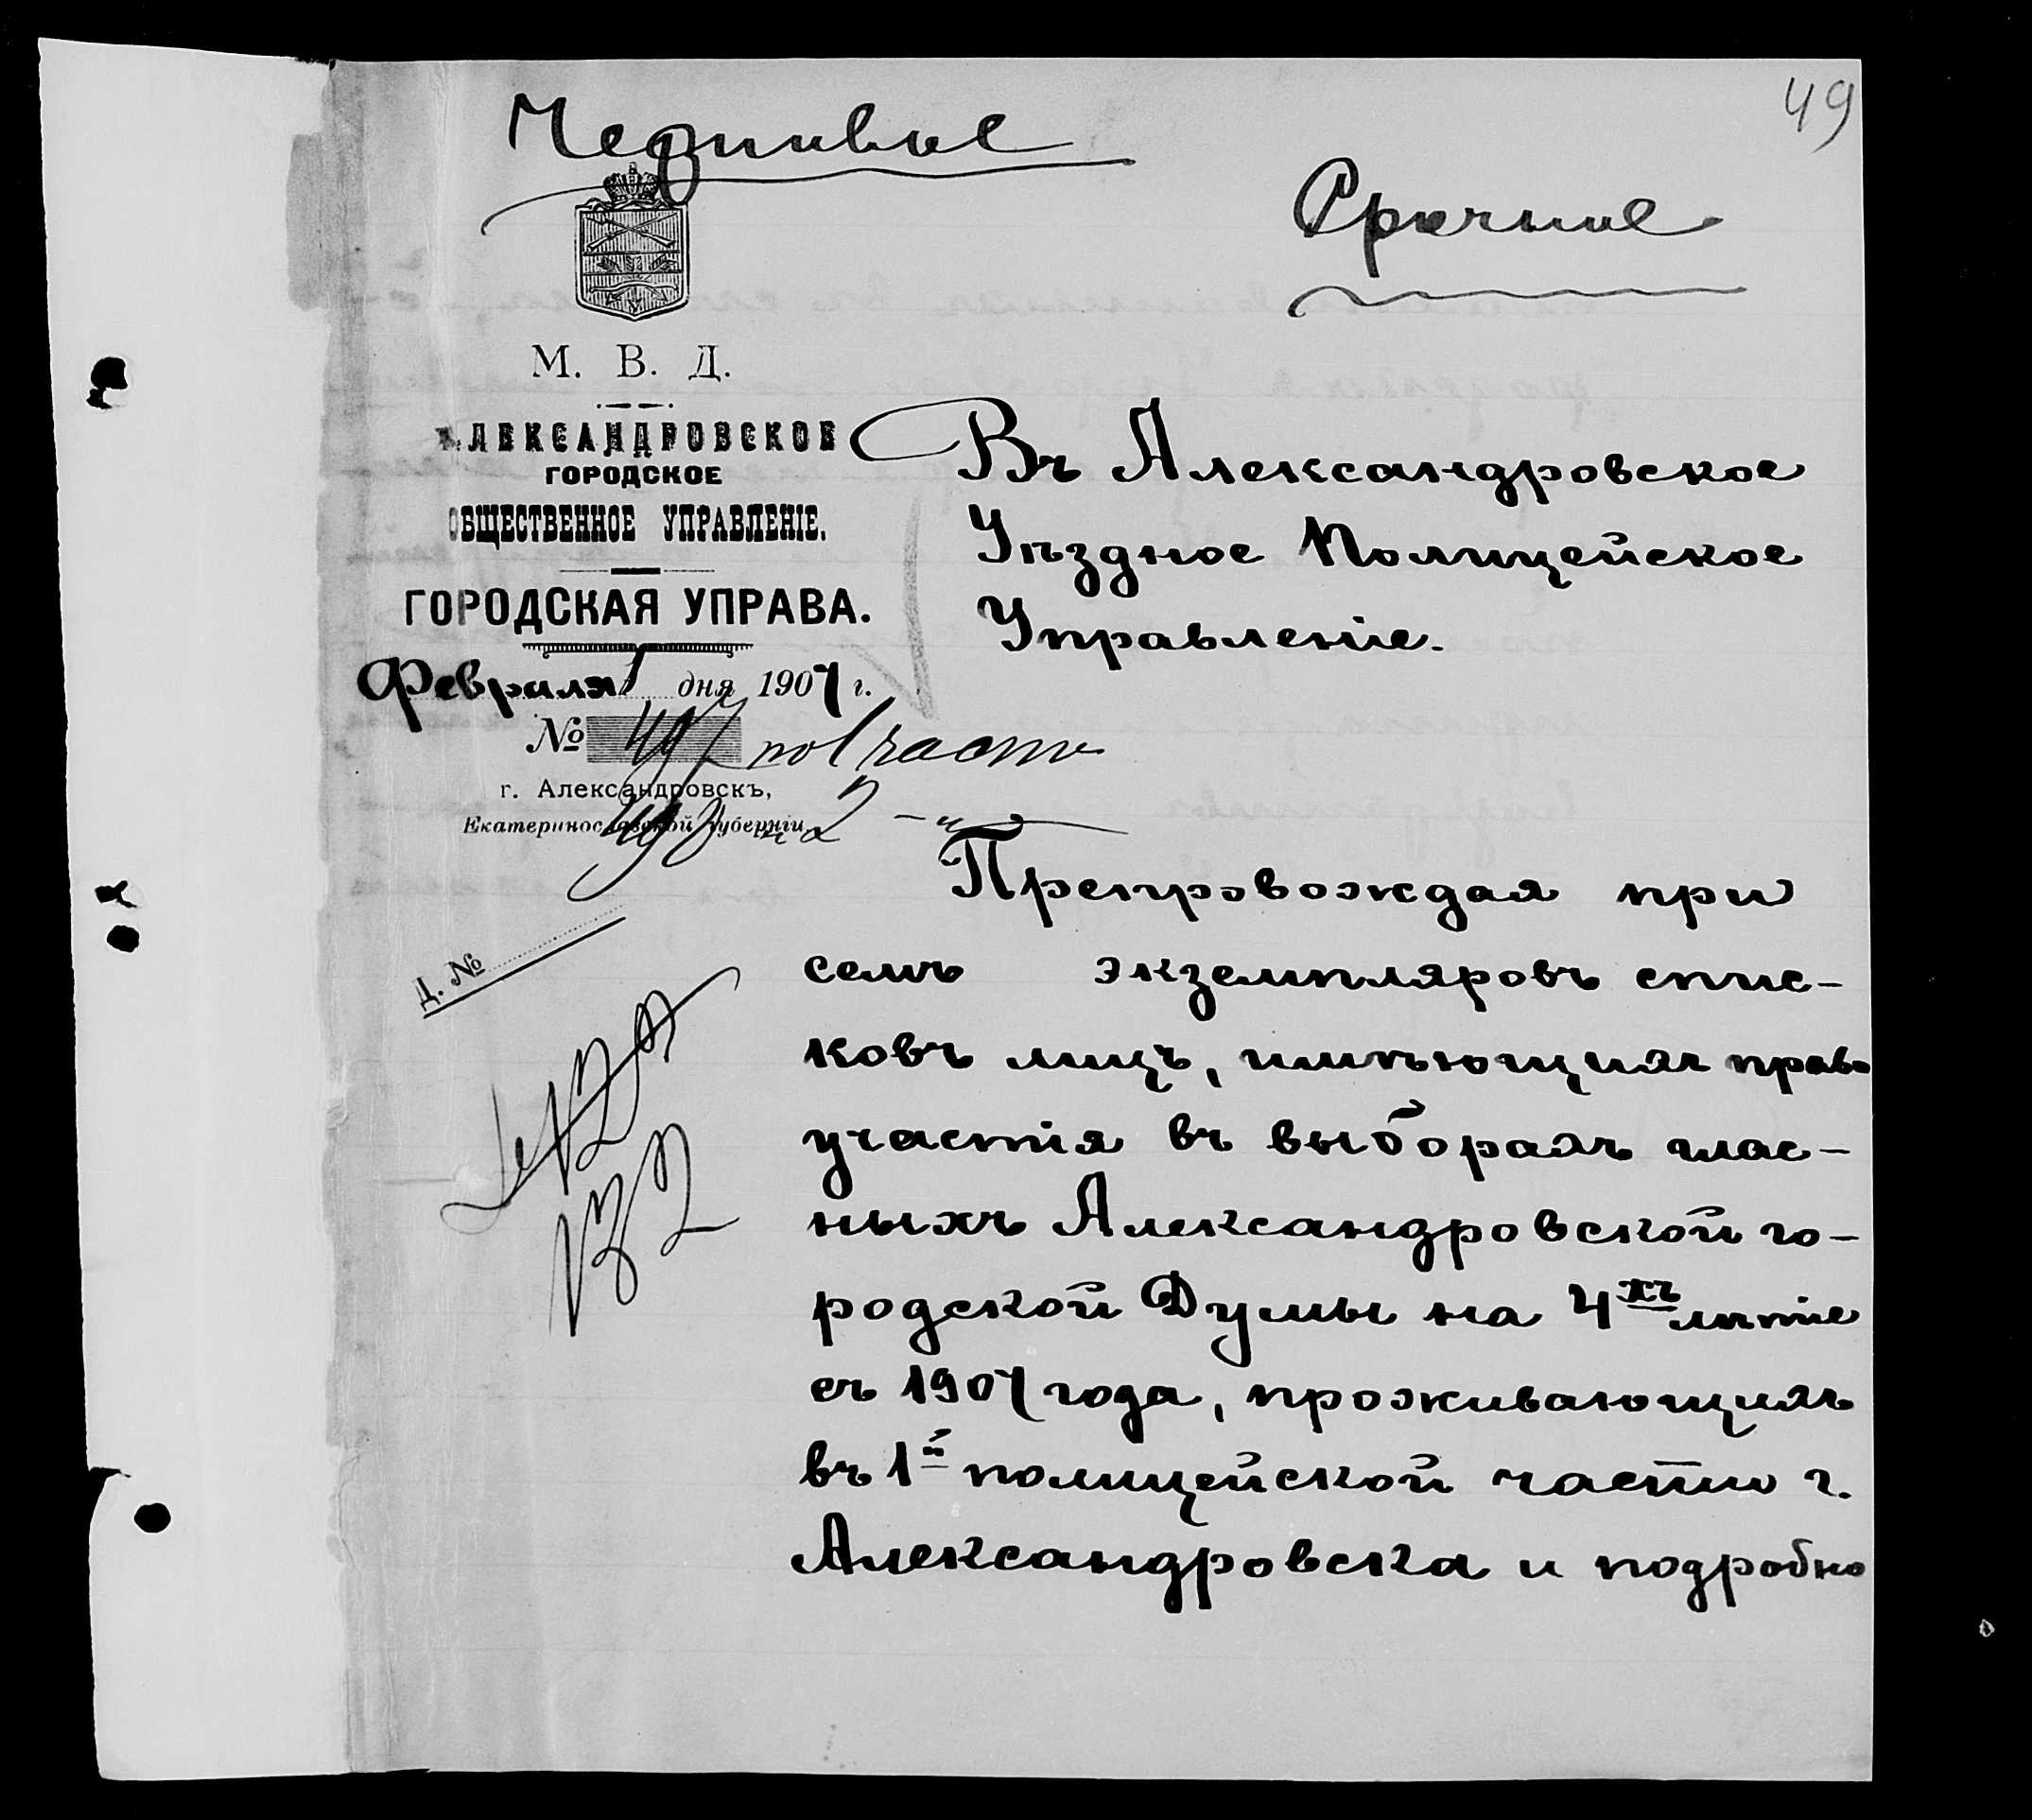 49
Черновое
Срочное
М. В. Д.
АЛЕКСАНДРОВСКОЕ
ГОРОДСКОЕ
ОБЩЕСТВЕННОЕ УПРАВЛЕНІЕ.
ГОРОДСКАЯ УПРАВА.
Февраля 1 дня 1907 г.
№ 497 по 1 части
г. Александровскъ,
Екатеринославской губерніи
498 " 2 - " -
Д. №
Въ Александровское
Уѣздное Полицейское
Управленіе.
Препровождая при
семъ экземпляровъ спис-
ковъ лицъ, имѣющихъ право
участія въ выборахъ глас-
ныхъ Александровской го-
родской Думы на 4хъ лѣтіе
съ 1907 года, проживающихъ
въ 1й полицейской части г.
Александровска и подробно